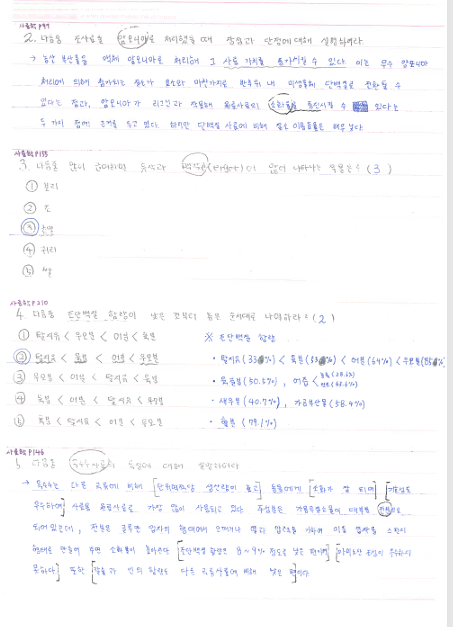 사료학 p197
2. 다음은 조사료를 암모니아로 처리했을 때 장점과 단점에 대해 설명하여라
→ 농산 부산물을 액체 암모니아로 처리해 그 사료 가치를 높아지게 할 수 있다. 이는 무수 암모니아
처리에 의해 첨가되는 질소가 요소와 마찬가지로 반추위 내 미생물체 단백질로 전환될 수
있다는 점과, 암모니아가 리그닌과 작용해 조사료의 소화율을 증진시킬 수 있다는
두 가지 점에 근거를 두고 있다. 하지만 단백질 사료에 비해 질소 이용효율은 매우 낮다
사료학 P155
3. 다음을 많이 급여하면 등석과 이 많이 나타나는 곡물은? (3)
① 보리
② 조
③
④ 귀리
⑤ 쌀
사료학 P210
4. 다음을 조단백질 함량이 낮은 것부터 높은 순서대로 나열하라? (2)
① 탈지유 < 우모분 < 어분 < 육분 ※ 조단백질 함량
② 탈지유 < 육분 < 어분 < 우모분 • 탈지유(33%) < 육분(53%) < 어분(64%) < 우모분(85%)
③ 우모분 < 어분 < 탈지유 < 육분 • 육골분(50.5%), 어즙
④ 육분 < 어분 < 탈지유 < 우모분 • 새우분(40.7%), 가금부산물(58.4%)
⑤ 육분 < 탈지유 < 어분 < 우모분 • 혈분(79.1%)
사료학 P146
5. 다음은 옥수수사료의 특성에 대해 설명하여라
→ 옥수수는 다른 곡류에 비해 [단위면적당 생산량이 높고] 동물에게 [소화가 잘 되며] [기호성도
우수하여] 사료용 곡류사료로 가장 많이 사용되고 있다. 주성분은 가용무질소물이며 대부분 전분으로
되어있는데, 전분은
형태로 만들어 주면 소화율이 높아진다. [조단백질 함량은 8~9% 정도로 낮은 편이며] [아미노산 조성이 우수하지
못하다] 또한 [칼슘과 인의 함량도 다른 곡류사료에 비해 낮은 편]이다